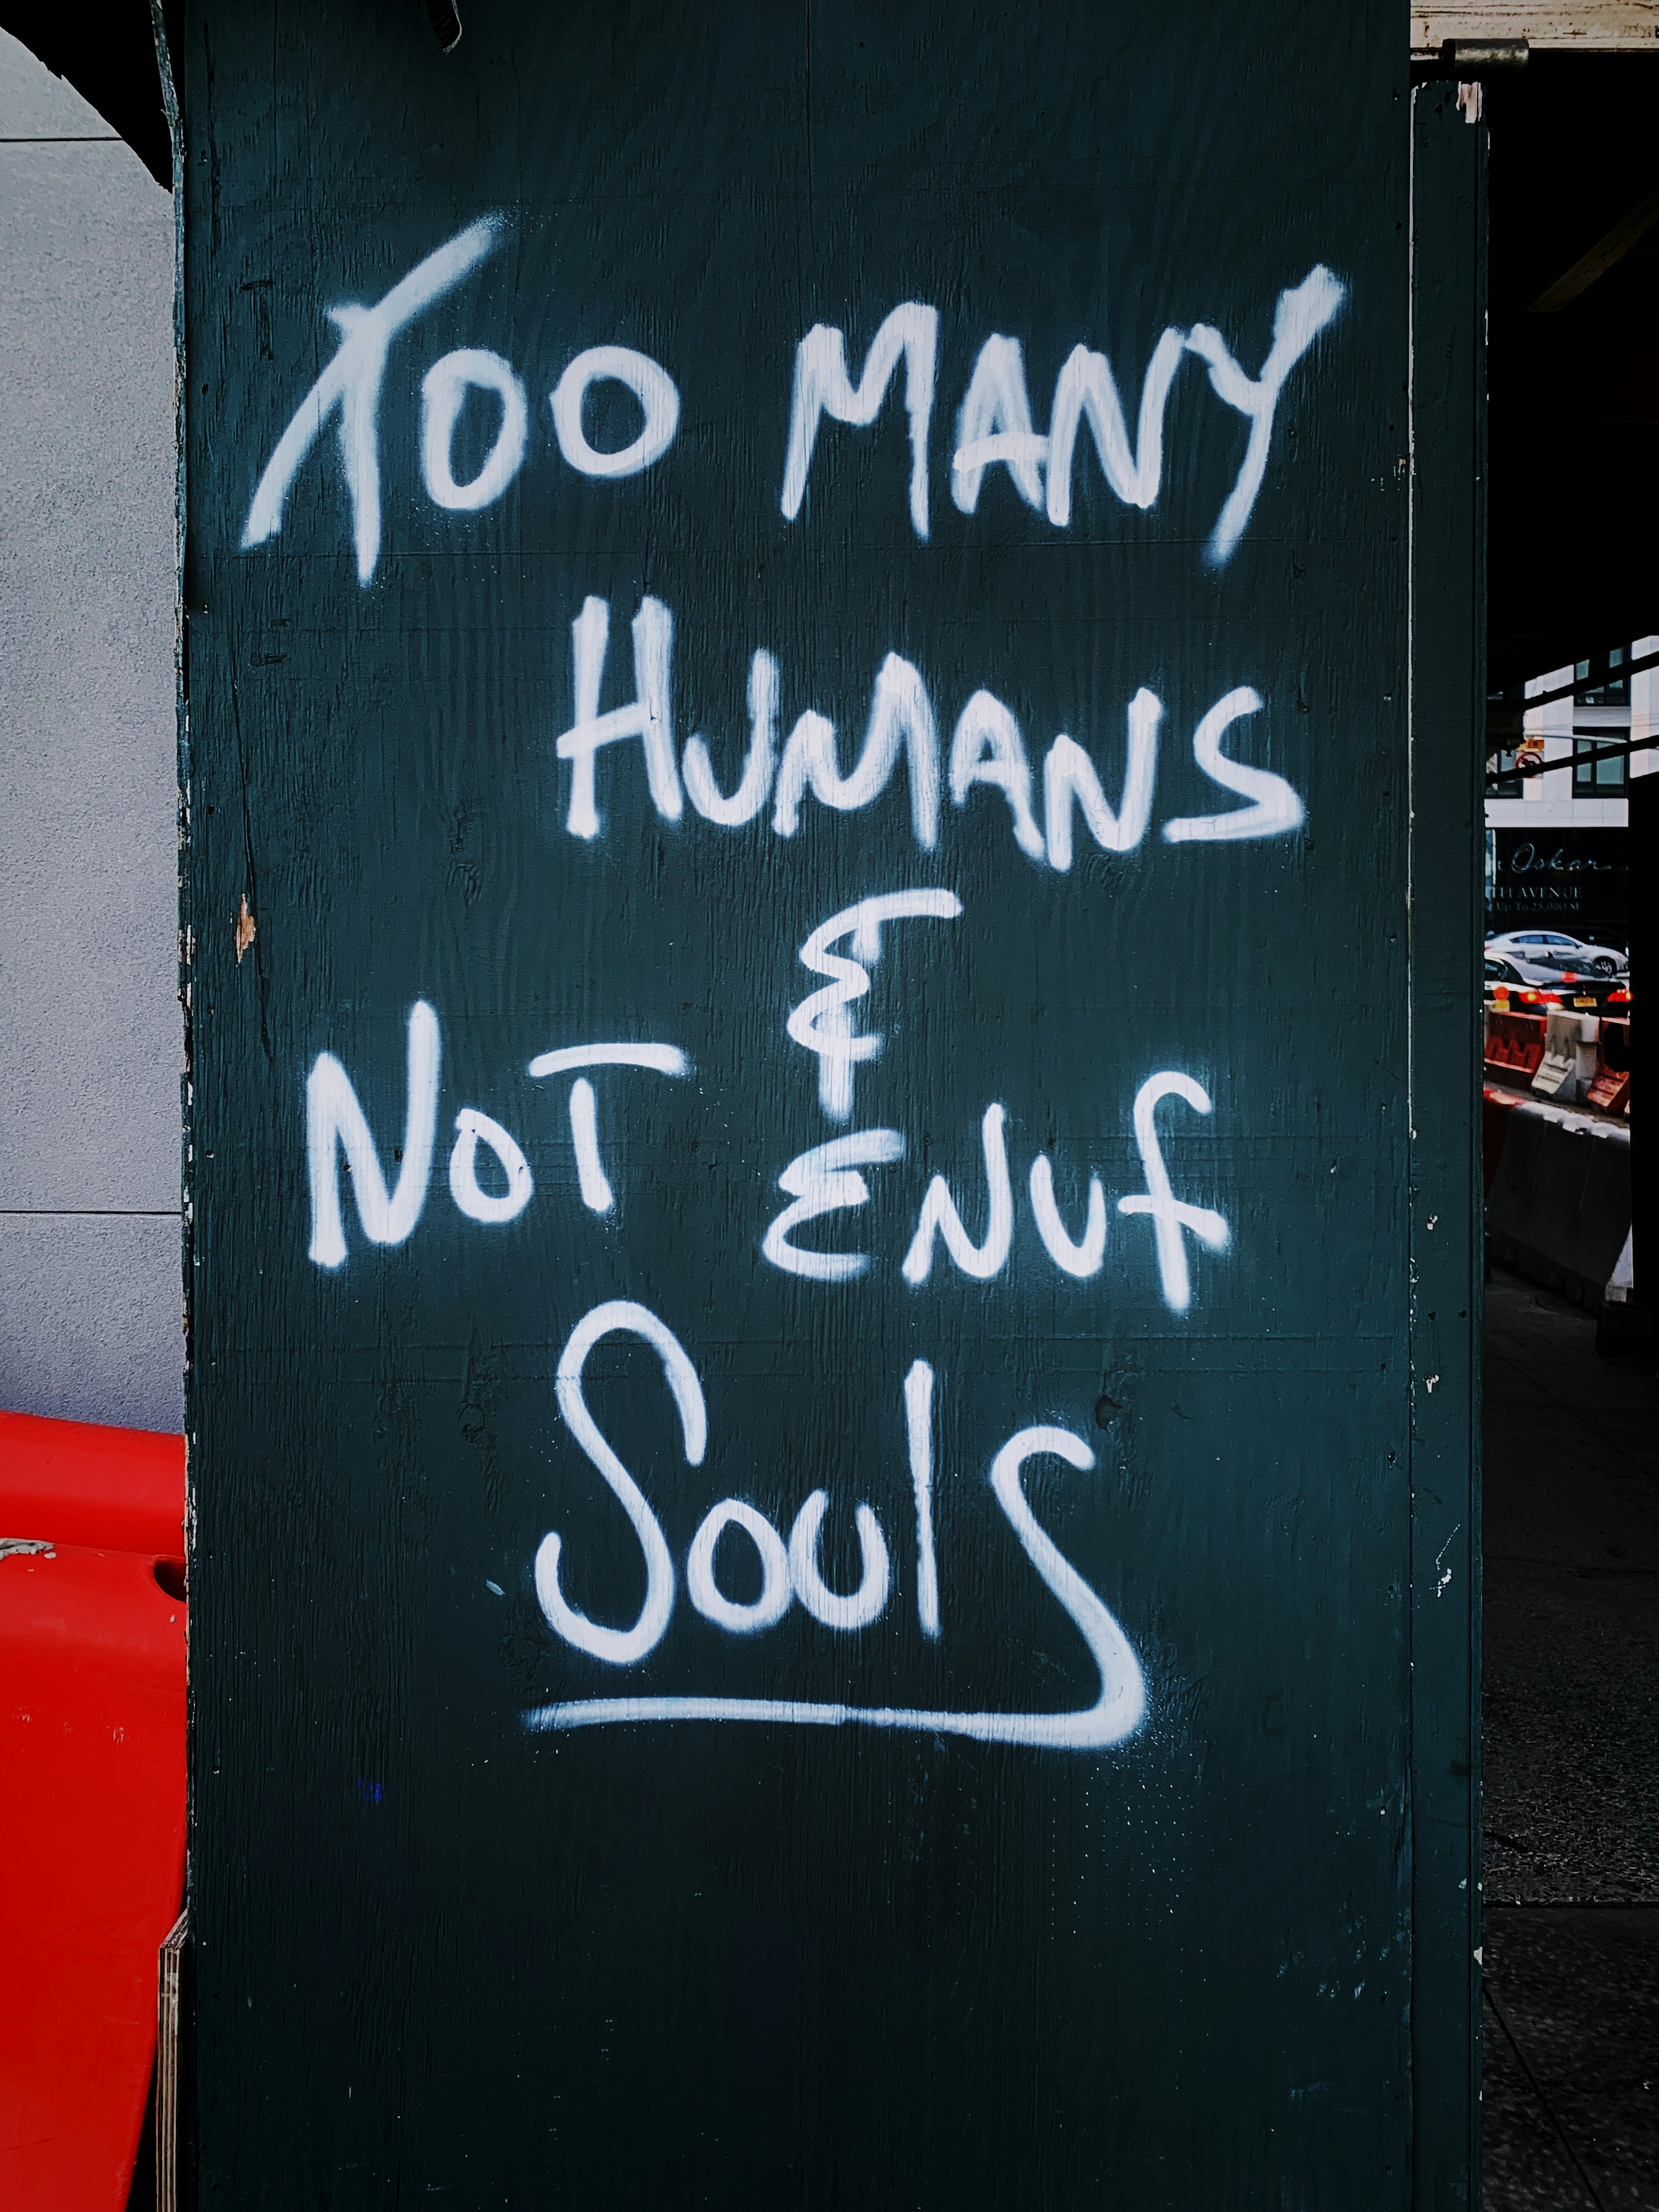 TOO MANY
HUMANS
&
NOT ENUf
SoulS
Oskar
AVENUE
Up To 25,000 SF